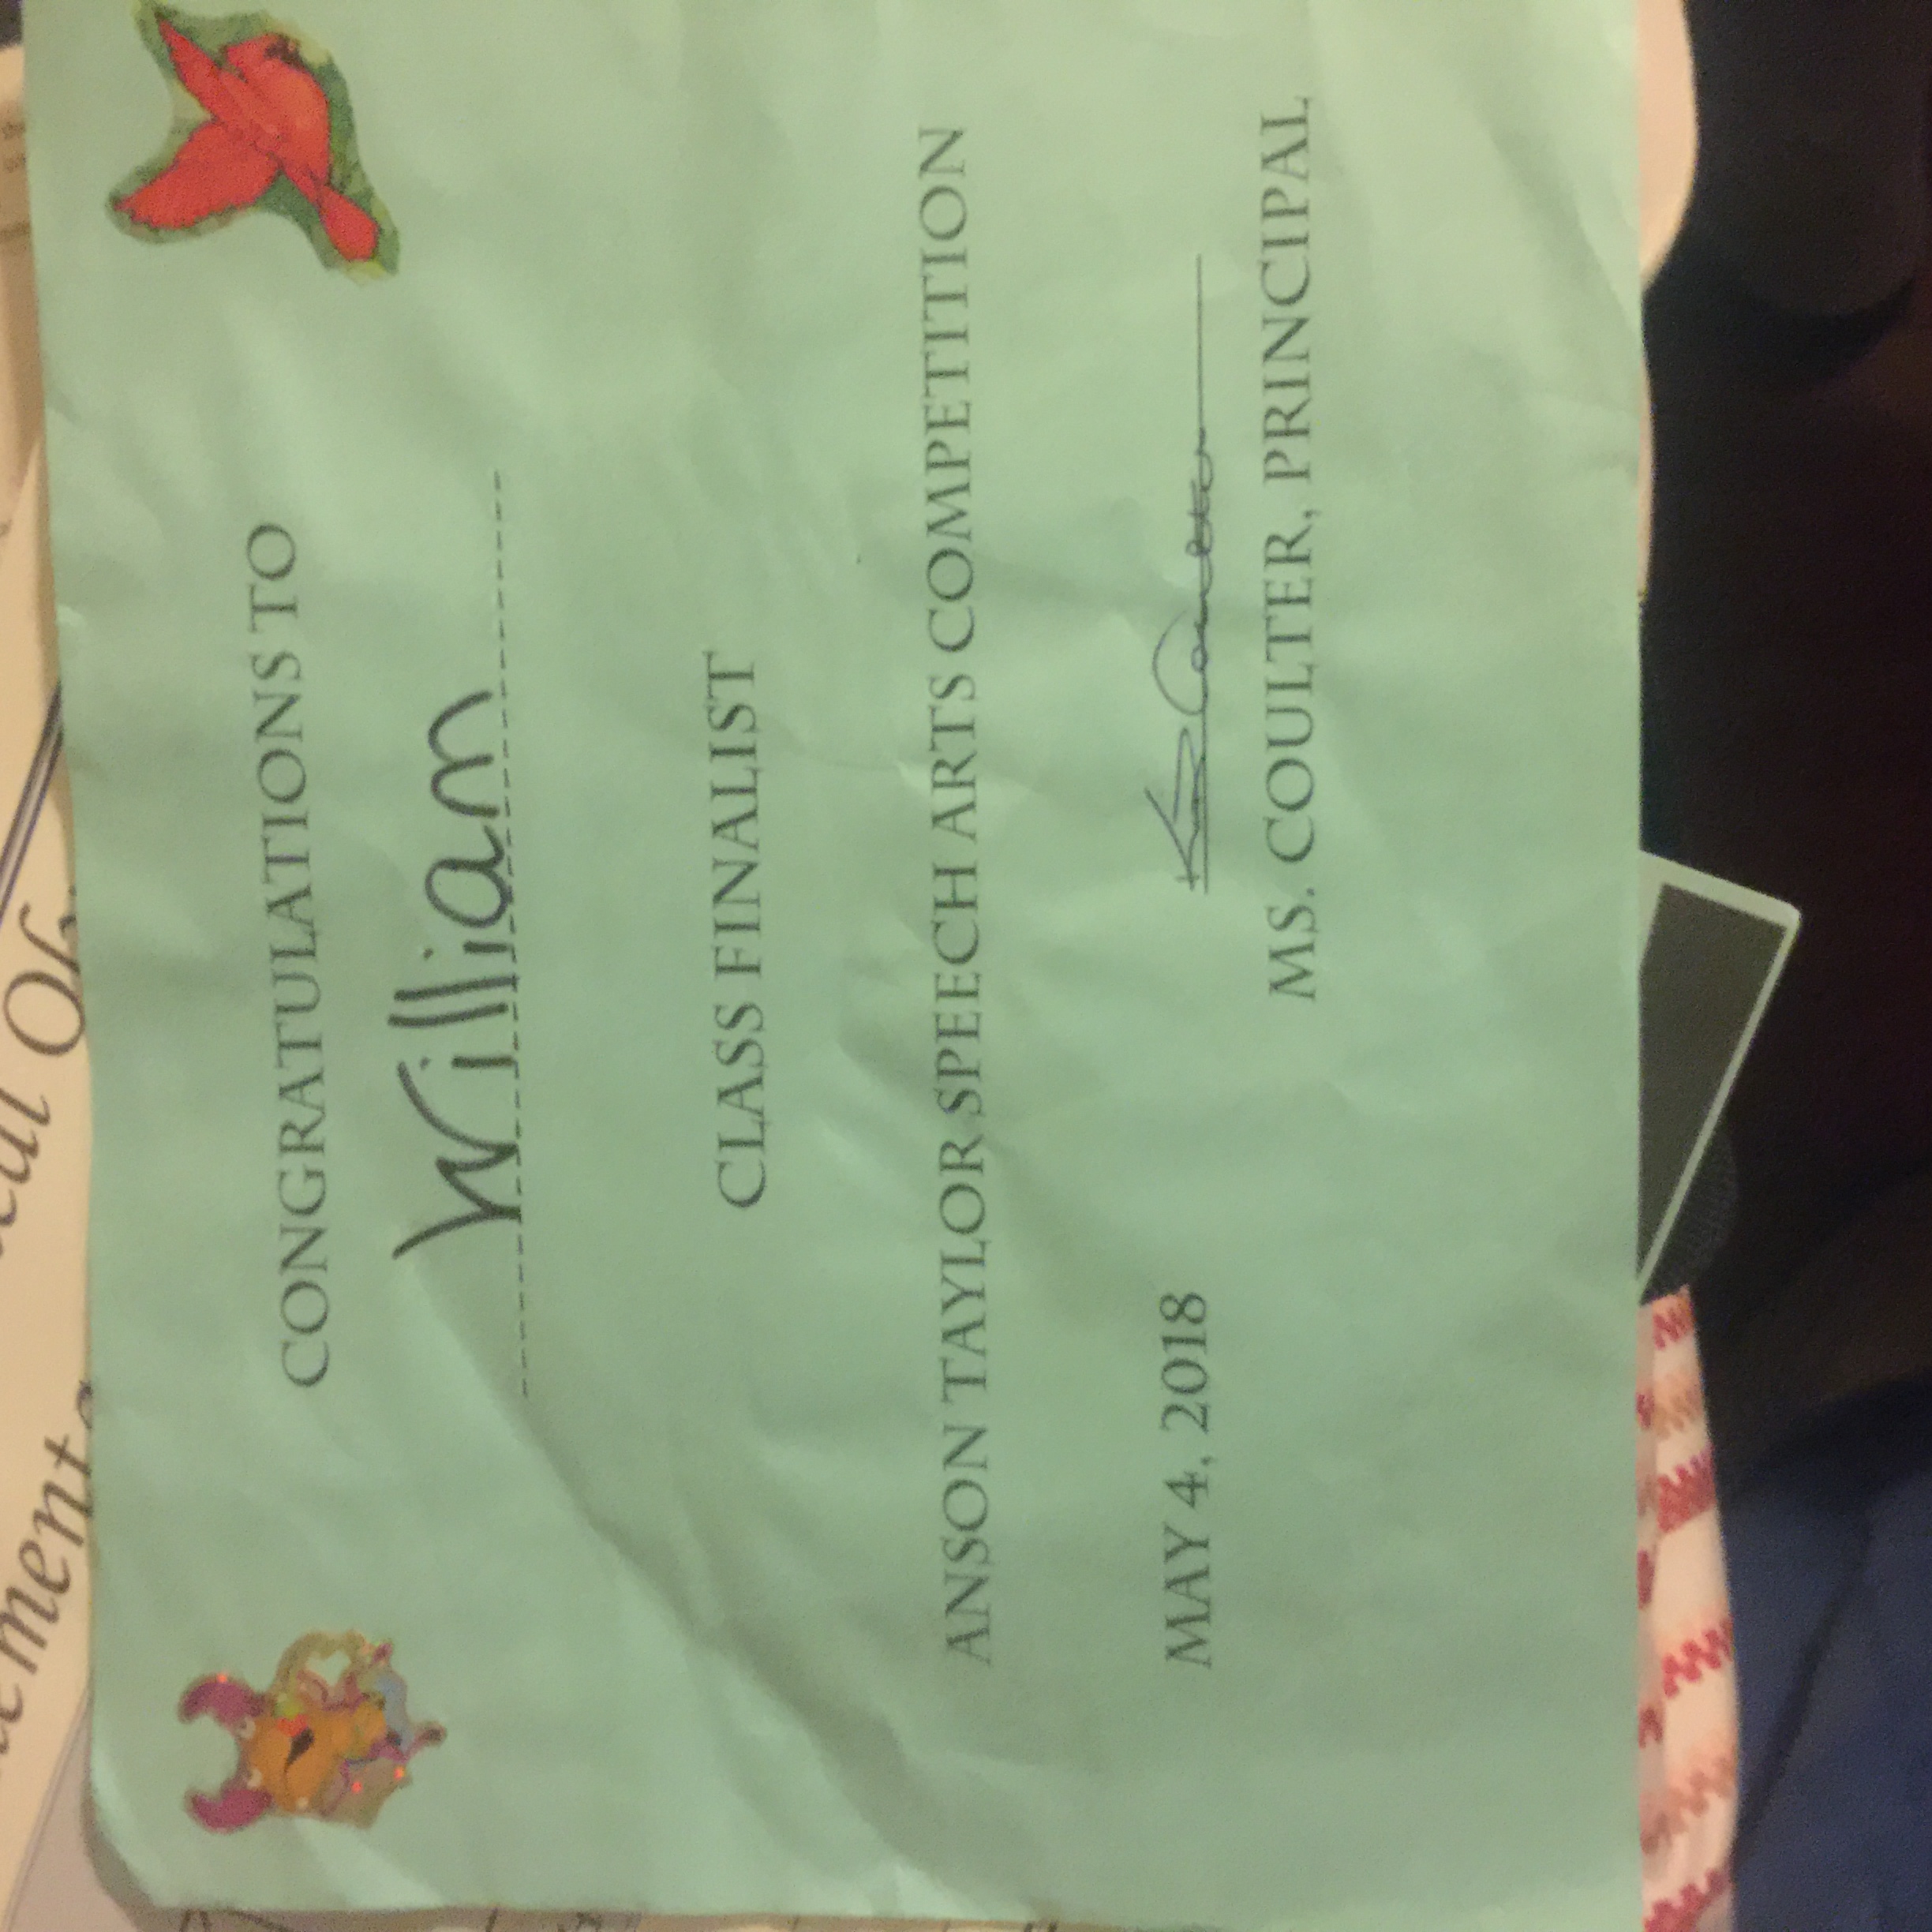 CONGRATULATIONS TO
William
CLASS FINALIST
ANSON TAYLOR SPEECH ARTS COMPETITION
MAY 4, 2018
MS. COULTER, PRINCIPAL